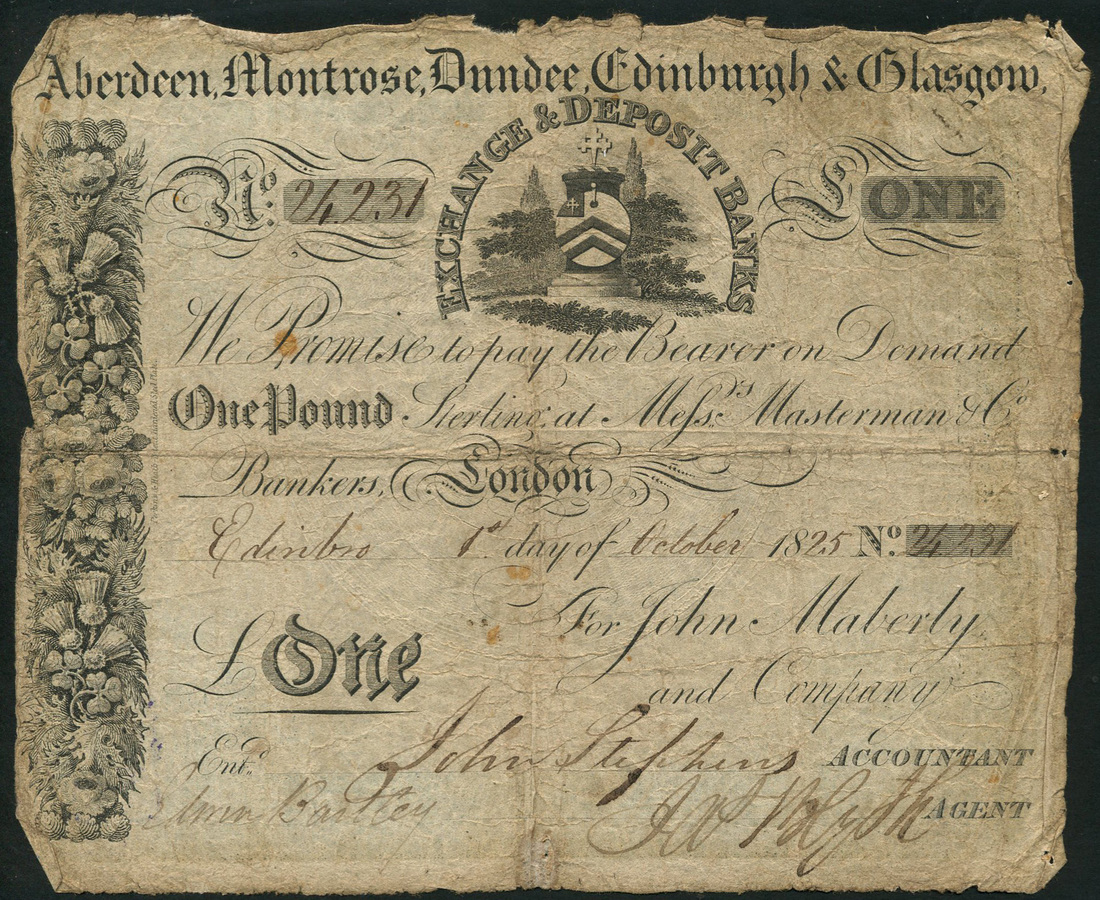 Aberdeen, Montrose, Dundee, Edinburgh & Glasgow,
EXCHANGE & DEPOSIT BANKS
No. 24,231
£ ONE
We Promise to pay the Bearer on Demand
One Pound Sterling at Messrs. Masterman & Co
Bankers, London
Edinbro 1st day of October 1825 No. 24,231
For John Maberly
and Company
£ One
John Stephens ACCOUNTANT
Entd
Bartley
Blyth AGENT